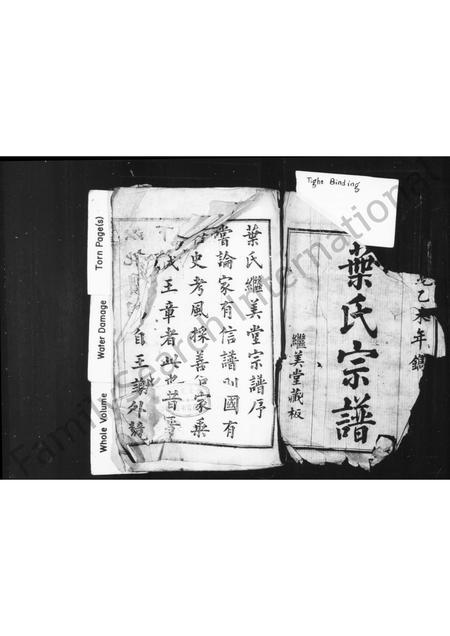 Tight Binding
乙未年鐫
葉氏宗譜
繼美堂藏板
葉氏繼美堂宗譜序
嘗論家有信譜以國有
史考風採善 家乘
王章者此也昔
自王謝外競
Torn Page(s)
Water Damage
Whole Volume
FamilySearch International